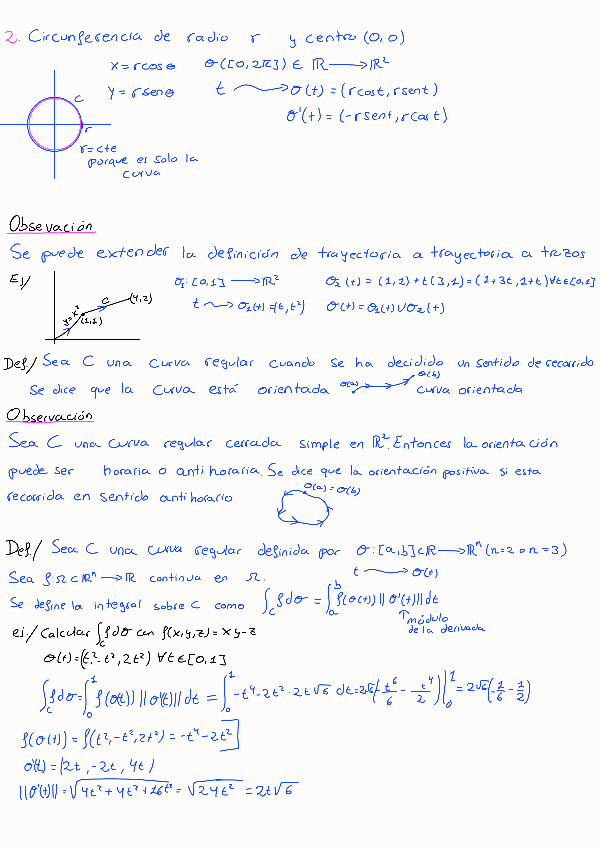 2. Circunferencia de radio r y centro (0,0)
x = r cos θ σ([0,2π]) ∈ ℝ ⟶ ℝ²
y = r sen θ t ⟶ σ(t) = (r cos t, r sen t)
σ'(t) = (-r sen t, r cos t)
C
r
r = cte
porque es solo la
curva
Obsevación
Se puede extender la definición de trayectoria a trayectoria a trozos
Ej/ σ₁: [0,1] ⟶ ℝ² σ₂(t) = (1,1) + t(3,1) = (1+3t, 1+t) ∀t∈[0,1]
t ⟶ σ₁(t) = (t, t²) σ(t) = σ₁(t) ∪ σ₂(t)
y=x² (1,1) C (4,2)
Def./ Sea C una curva regular cuando se ha decidido un sentido de recorrido
se dice que la curva está orientada σ(a) σ(b) curva orientada
Observación
Sea C una curva regular cerrada simple en ℝ². Entonces la orientación
puede ser horaria o antihoraria. Se dce que la orientación positiva si esta
recorrida en sentido antihorario σ(a) = σ(b)
Def./ Sea C una curva regular definida por σ: [a,b] ⊂ ℝ ⟶ ℝⁿ (n=2 o n=3)
t ⟶ σ(t)
Sea f: Ω ⊂ ℝⁿ ⟶ ℝ continua en Ω.
Se define la integral sobre C como ∫_C f dσ = ∫_a^b f(σ(t)) ||σ'(t)|| dt
↑ módulo
de la derivada
ej/ Calcular ∫_C f dσ con f(x,y,z) = xy - z
σ(t) = (t², -t², 2t²) ∀t∈[0,1]
∫_C f dσ = ∫_0^1 f(σ(t)) ||σ'(t)|| dt = ∫_0^1 -t⁴ - 2t² · 2t√6 dt = 2√6 (-t⁶/6 - t⁴/2) |_0^1 = 2√6 (-1/6 - 1/2)
f(σ(t)) = f(t², -t², 2t²) = -t⁴ - 2t²
σ'(t) = (2t, -2t, 4t)
||σ'(t)|| = √(4t² + 4t² + 16t²) = √(24t²) = 2t√6